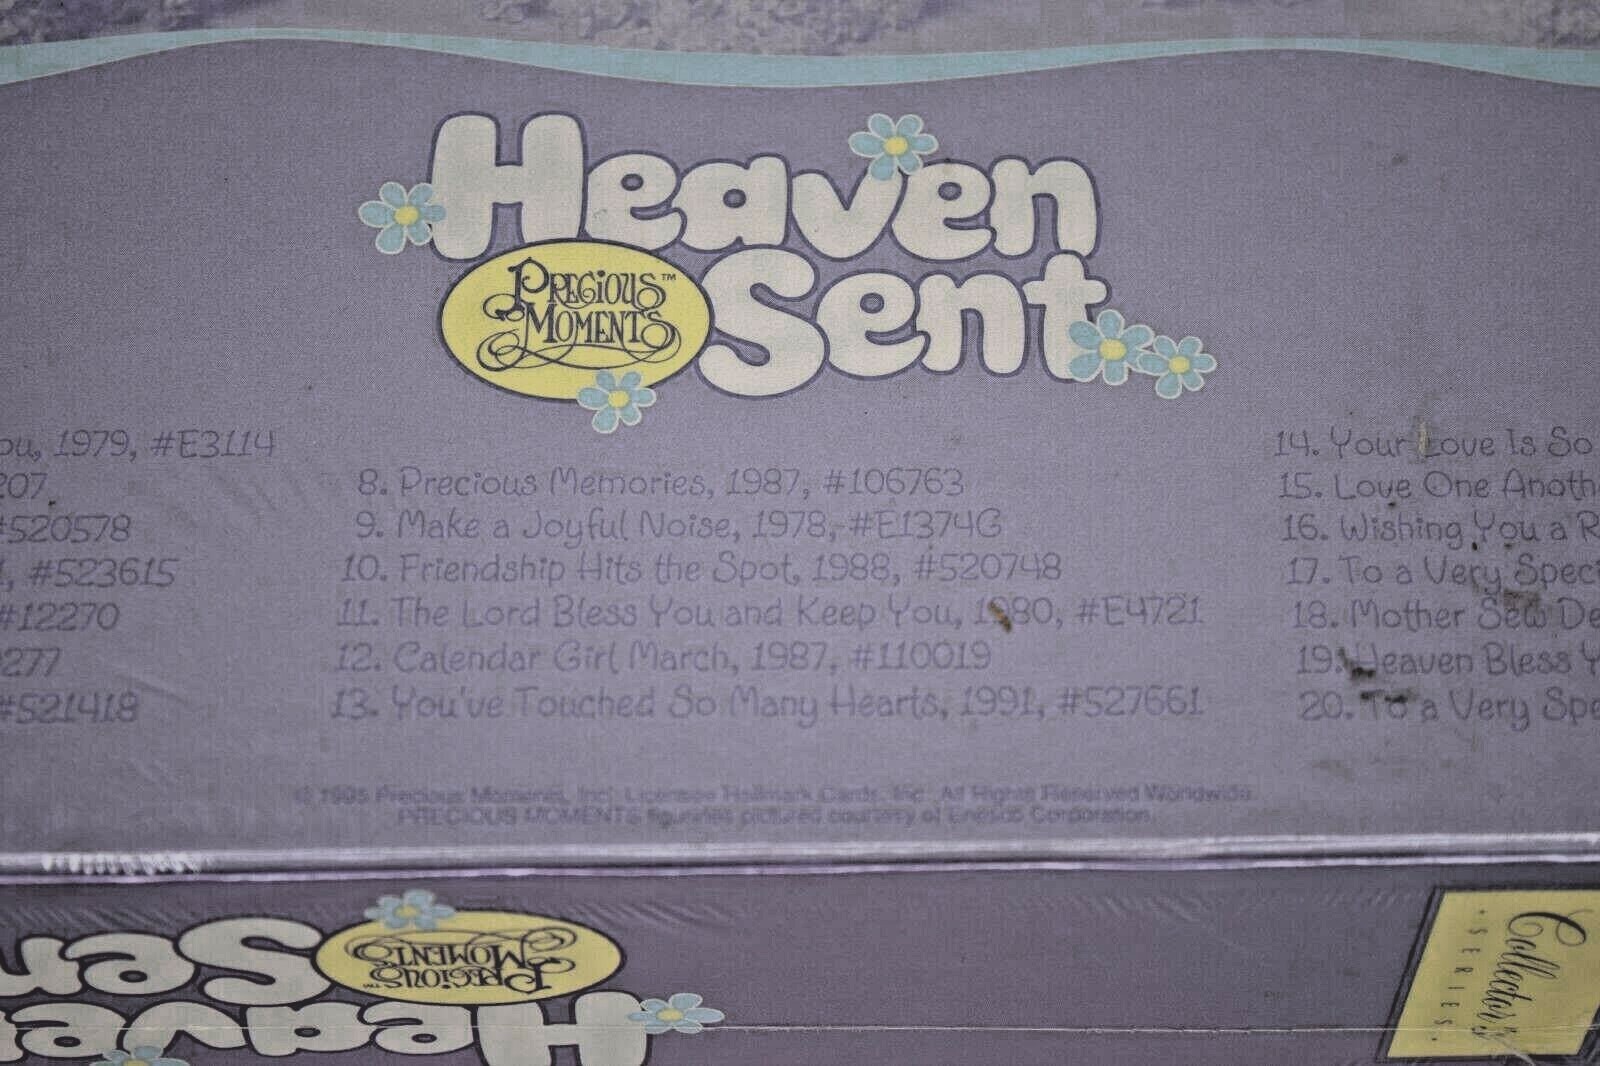 Heaven
Sent
PRECIOUS™
MOMENTS
ou, 1979, #E3114
207
#520578
1, #523615
#12270
277
#521418
8. Precious Memories, 1987, #106763
9. Make a Joyful Noise, 1978, #E1374G
10. Friendship Hits the Spot, 1988, #520748
11. The Lord Bless You and Keep You, 1980, #E4721
12. Calendar Girl March, 1987, #110019
13. You've Touched So Many Hearts, 1991, #527661
14. Your Love Is So
15. Love One Anoth
16. Wishing You a R
17. To a Very Speci
18. Mother Sew De
19. Heaven Bless Y
20. To a Very Spe
© 1995 Precious Moments, Inc. Licensee Hallmark Cards, Inc. All Rights Reserved Worldwide
PRECIOUS MOMENTS figurines pictured courtesy of Enesco Corporation.
Heave
Sen
PRECIOUS™
MOMENTS
Collector's
• SERIES •